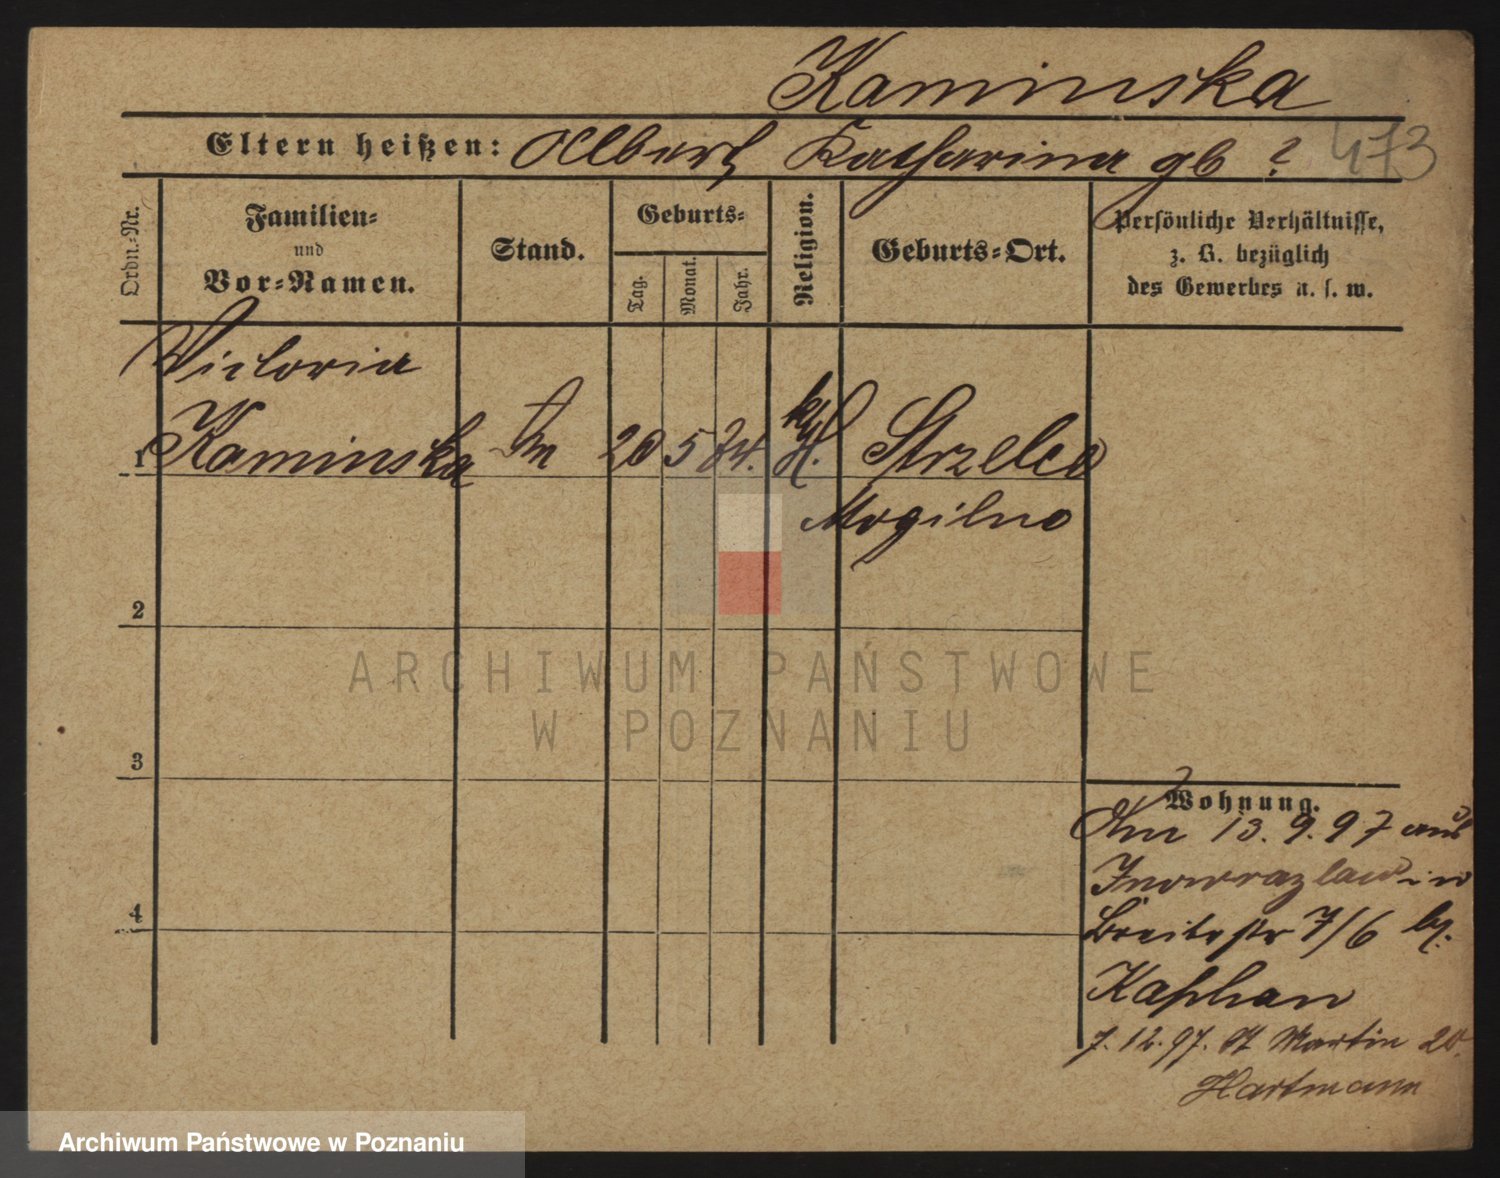 Kaminska
Eltern heißen: Albert Katharina gb ? 473
Ordn.-Nr.
Familien-
und
Vor-Namen.
Stand.
Geburts-
Tag.
Monat.
Jahr.
Religion.
Geburts-Ort.
Persönliche Verhältnisse,
z. B. bezüglich
des Gewerbes u. s. w.
Victoria
1 Kaminska 20 5 74. kth. Strzelce
Mogilno
2
ARCHIWUM PAŃSTWOWE
W POZNANIU
3
Wohnung.
Am 13. 9. 97 aus
Inowrazlaw in
4
Breitestr 7/6 bei
Kaphan
7. 12. 97. St Martin 20.
Hartmann
Archiwum Państwowe w Poznaniu